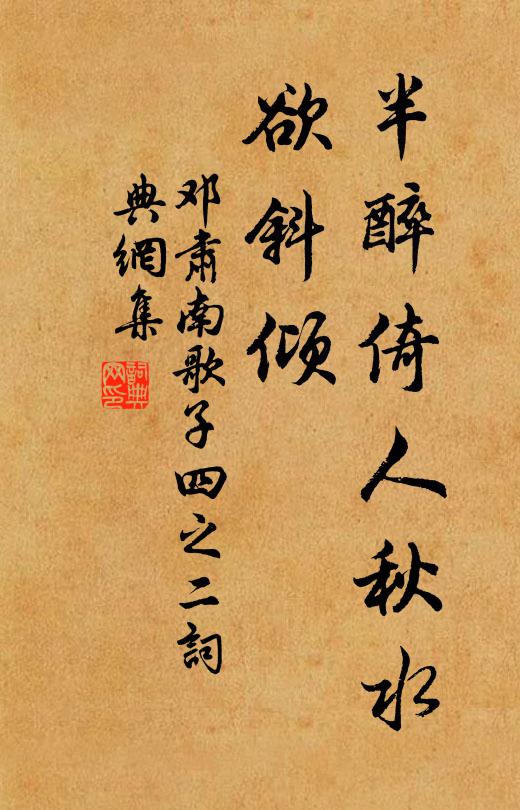 半醉倚人秋水
欲斜倾
邓肃南歌子四之二詞
典網集
詞典网印